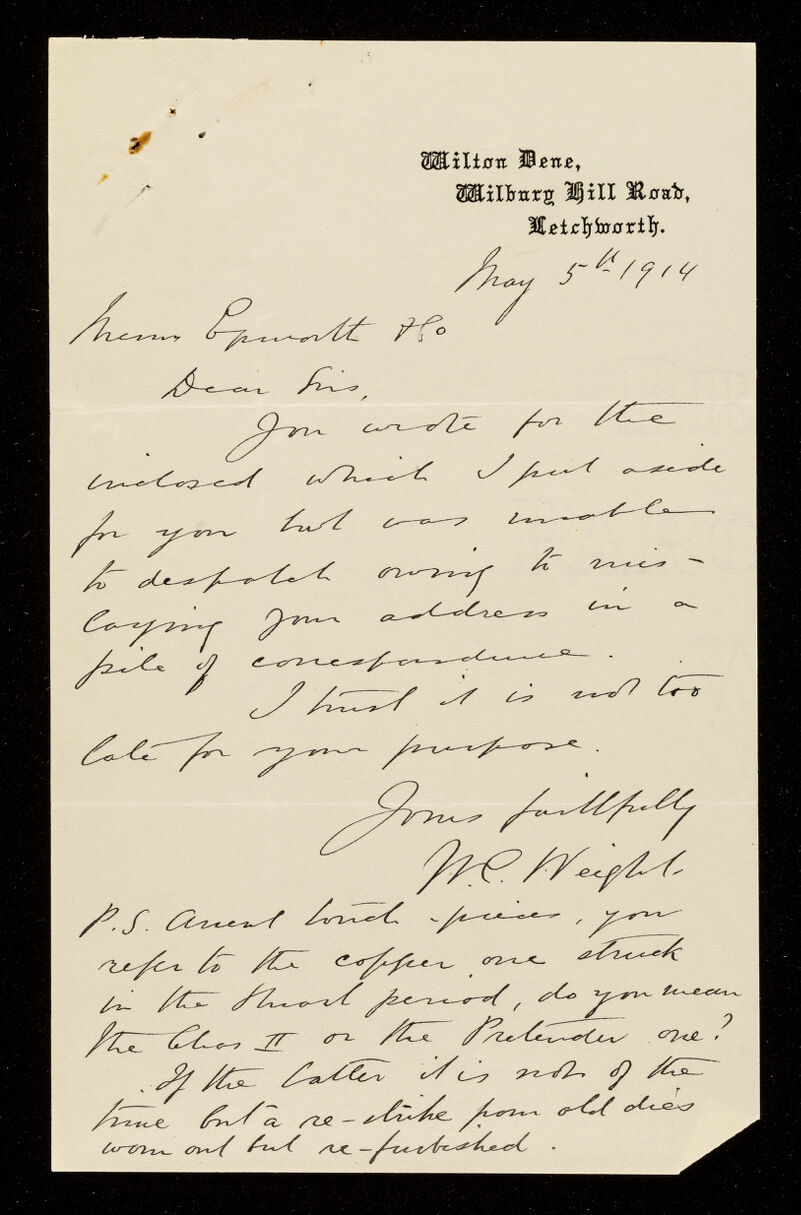 Wilton Dene,
Wilbury Hill Road,
Letchworth.
May 5th 1914
Messrs Epworth & Co
Dear Sirs,
You wrote for the
inclosed which I put aside
for you but was unable
to despatch owing to mis-
laying your address in a
pile of correspondence.
I trust it is not too
late for your purpose.
Yours faithfully
W.C. Weight.
P.S. Anent touch-pieces, you
refer to the copper one struck
in the Stuart period, do you mean
the Chas II or the Pretender one?
If the latter it is not of the
time but a re-strike from old dies
worn out but re-furbished.